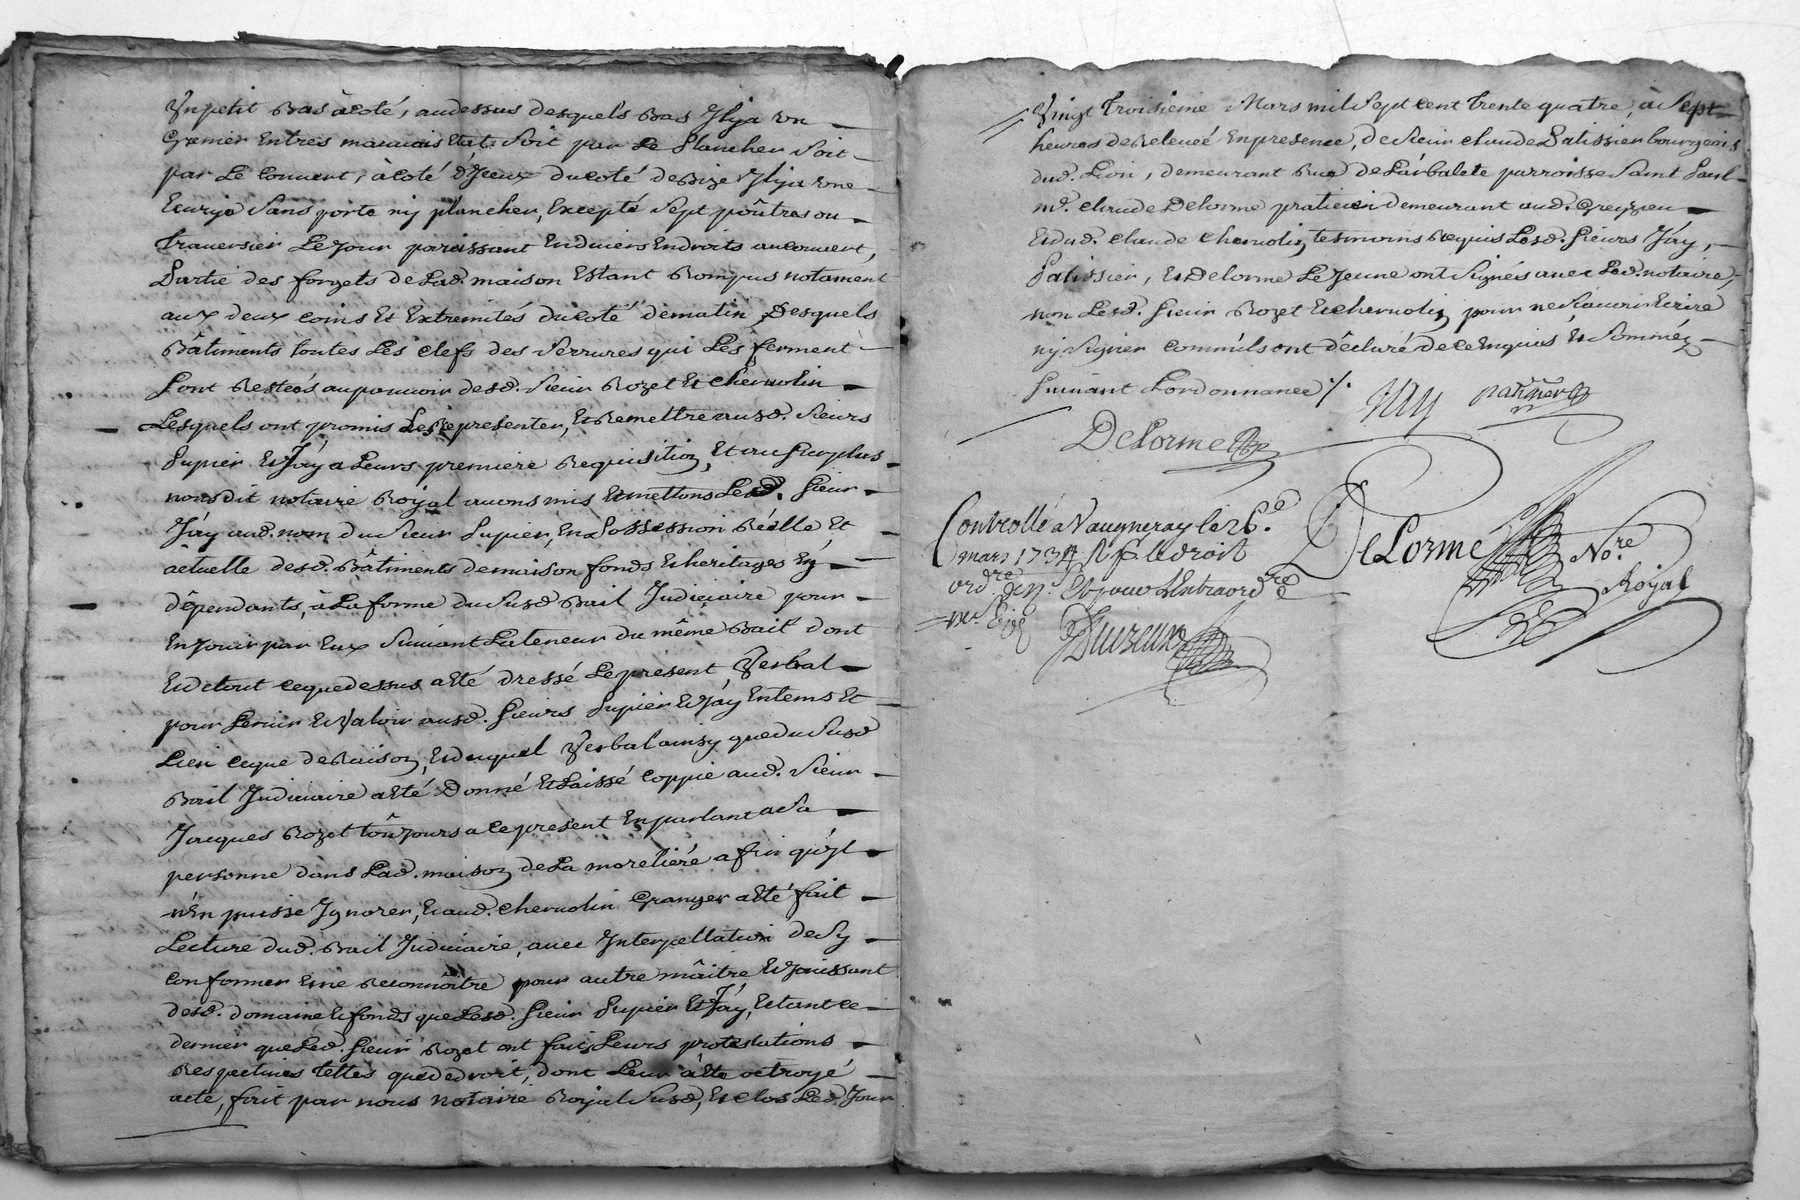 Un petit Bas à coté, audessus desquels Bas Il ija un
Grenier Entres mauvais Etat Soit par Le Plancher Soit
par Le Couvert, à coté d'Jceux du coté de Bize Il ija une
Ecurije Sans porte nij plancher, Excepté Sept poûtres ou
traversier Le Jour paroissant En divers Endroits au couvert,
Partie des forgets de Lad. maison Estant Rompus notament
aux deux coins Et Extremités du coté de matin, Desquels
Bâtiments toutes Les Clefs des Serrures qui Les ferment
Sont Restées au pouvoir desd. Sieur Rozet Et Chervolin
Lesquels ont promis Les Representer, Et Remettre ausd. Sieurs
Supier Et Jáy a Leurs premiere Requisition, Et au Surplus
nousdit notaire Roijal avons mis Et mettons Led. Sieur
Jáy aud. nom du Sieur Supier, En Possession Réelle, Et
actuelle desd. Bâtiments de maison fonds Et heritages En
dépendants, à La forme du Susd Bail Judiciaire pour
En Jouir par Eux Suivant La teneur du même Bail dont
Et de tout ce que dessus a Eté dressé Le present Verbal
pour Servir Et Valoir ausd. Sieurs Supier Et Jáy En tems Et
Lieu ce que de Raison, Et duquel Verbal ainsy que du Susd
Bail Judiciaire a Eté Donné Et Laissé Coppie aud. Sieur
Jacques Rozet toûjours a ce present En parlant a Sa
personne dans Lad. maison de La moreliere afin qu'Il
n'En puisse Jgnorer, Et aud. Chervolin Granger a Eté fait
Lecture dud. Bail Judiciaire, avec Interpellation de Sy
conformer Et ne Reconnôitre pour autre maître Et Jouissant
desd. domaine Et fonds que Lesd. Sieur Supier Et Jáy, Et tant ce
dernier que Led. Sieur Rozet ont fait Leurs protestations
Respectives telles que de droit, dont Leur a Eté octroyé
acte, fait par nous notaire Roijal Susd, Et clos Led. Jour
Vingt troisieme Mars mil Sept cent trente quatre, à Sept
heures de Relevée En presence, de Sieur claude Patissier bourgeois
dud. Lion, demeurant Rue de L'arbalete parroisse Saint Paul
me. claude Delorme praticien demeurant aud. Greyzieu
Et dud. claude Chervolin, tesmoins Requis Lesd. Sieurs Jáy,
Patissier, Et Delorme Le Jeune ont Signés avec Led. notaire,
non Lesd. Sieur Rozet Et chervolin pour ne Sçavoir Ecrire
nij Signer comm'ils ont déclaré de ce Enquis Et Sommés
Suivant Lordonnance %.
Jay patissier
DeLorme
Controllé a Vaugneray le 26.e
mars 1734
DeLorme No.re
Roijal